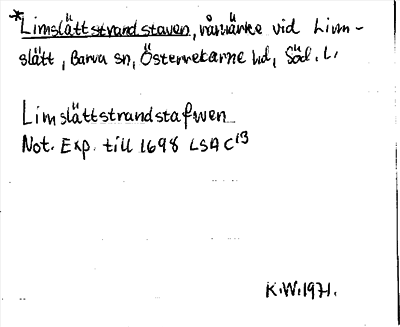 *Limslättstrandstaven, råmärke vid Lim-
slätt, Barva sn, Österrekarne hd, Söd. L.
Limslättstrandstafwen
Not. Exp. till 1698 LSA C 13
K.W. 1971.